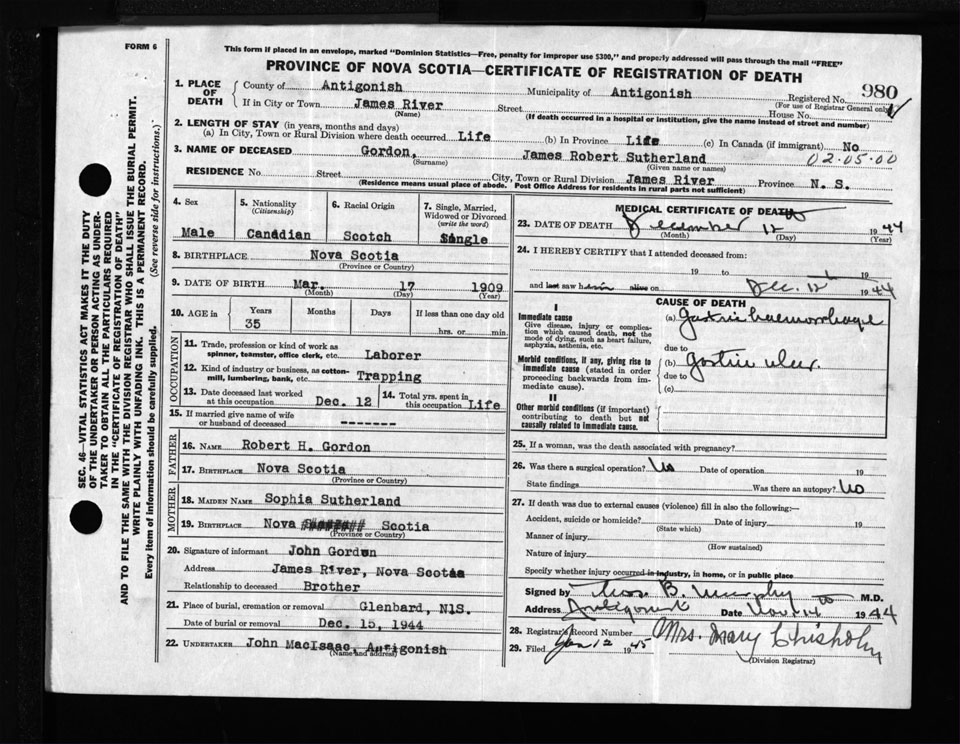 FORM 6
This form if placed in an envelope, marked "Dominion Statistics—Free, penalty for improper use $300," and properly addressed will pass through the mail "FREE"
PROVINCE OF NOVA SCOTIA—CERTIFICATE OF REGISTRATION OF DEATH
1. PLACE OF DEATH County of Antigonish Municipality of Antigonish Registered No. 980
(For use of Registrar General only)
If in City or Town James River Street House No.
(Name) (If death occurred in a hospital or institution, give the name instead of street and number)
2. LENGTH OF STAY (in years, months and days)
(a) In City, Town or Rural Division where death occurred Life (b) In Province Life (c) In Canada (if immigrant) No
3. NAME OF DECEASED Gordon, James Robert Sutherland 02.05.00
(Surname) (Given name or names)
RESIDENCE No Street City, Town or Rural Division James River Province N. S.
(Residence means usual place of abode. Post Office Address for residents in rural parts not sufficient)
4. Sex 5. Nationality (Citizenship) 6. Racial Origin 7. Single, Married, Widowed or Divorced (write the word)
Male Canadian Scotch Single
8. BIRTHPLACE Nova Scotia
(Province or Country)
9. DATE OF BIRTH Mar. 17 1909
(Month) (Day) (Year)
10. AGE in Years Months Days If less than one day old
35 hrs. or min.
OCCUPATION
11. Trade, profession or kind of work as
spinner, teamster, office clerk, etc. Laborer
12. Kind of industry or business, as cotton-
mill, lumbering, bank, etc. Trapping
13. Date deceased last worked at this occupation Dec. 12 14. Total yrs. spent in this occupation Life
15. If married give name of wife
or husband of deceased -------
FATHER
16. NAME Robert H. Gordon
17. BIRTHPLACE Nova Scotia
(Province or Country)
MOTHER
18. MAIDEN NAME Sophia Sutherland
19. BIRTHPLACE Nova Scotia
(Province or Country)
20. Signature of informant John Gordon
Address James River, Nova Scotia
Relationship to deceased Brother
21. Place of burial, cremation or removal Glenbard, N.S.
Date of burial or removal Dec. 15, 1944
22. UNDERTAKER John MacIsaac, Antigonish
(Name and address)
MEDICAL CERTIFICATE OF DEATH
23. DATE OF DEATH December 12 1944
(Month) (Day) (Year)
24. I HEREBY CERTIFY that I attended deceased from:
19 to 19
and last saw him alive on Dec. 12 1944
CAUSE OF DEATH
I
Immediate cause (a) Gastric haemorrhage
Give disease, injury or complica-
tion which caused death, not the
mode of dying, such as heart failure,
asphyxia, asthenia, etc.
due to
Morbid conditions, if any, giving rise to (b) Gastric ulcer.
immediate cause (stated in order due to
proceeding backwards from im- (c)
mediate cause).
II
Other morbid conditions (if important)
contributing to death but not
causally related to immediate cause.
25. If a woman, was the death associated with pregnancy?
26. Was there a surgical operation? No Date of operation 19
State findings Was there an autopsy? No
27. If death was due to external causes (violence) fill in also the following:—
Accident, suicide or homicide? Date of injury 19
(State which)
Manner of injury
(How sustained)
Nature of injury
Specify whether injury occurred in industry, in home, or in public place
Signed by Thos. B. Murphy M.D.
Address Antigonish Date Nov 14 1944
28. Registrar's Record Number Mrs. Mary Chisholm
29. Filed Jan 12 1945
(Division Registrar)
SEC. 46—VITAL STATISTICS ACT MAKES IT THE DUTY
OF THE UNDERTAKER OR PERSON ACTING AS UNDER-
TAKER TO OBTAIN ALL THE PARTICULARS REQUIRED
IN THE "CERTIFICATE OF REGISTRATION OF DEATH"
AND TO FILE THE SAME WITH THE DIVISION REGISTRAR WHO SHALL ISSUE THE BURIAL PERMIT.
WRITE PLAINLY WITH UNFADING INK. THIS IS A PERMANENT RECORD.
Every item of information should be carefully supplied. (See reverse side for instructions.)